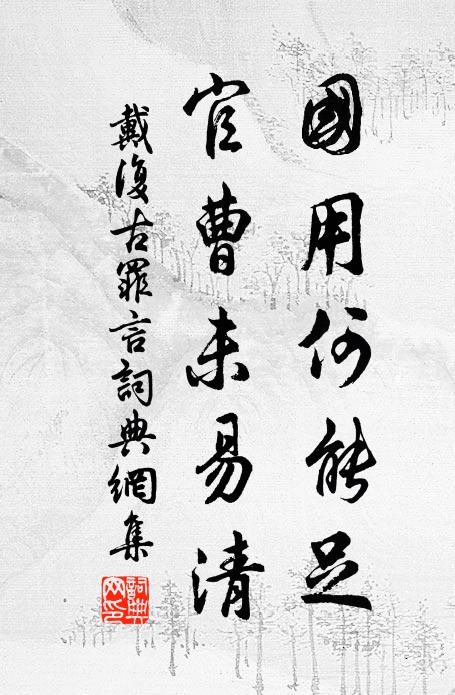 國用何能足
官曹未易清
戴復古罪言詞典網集
詞典網印